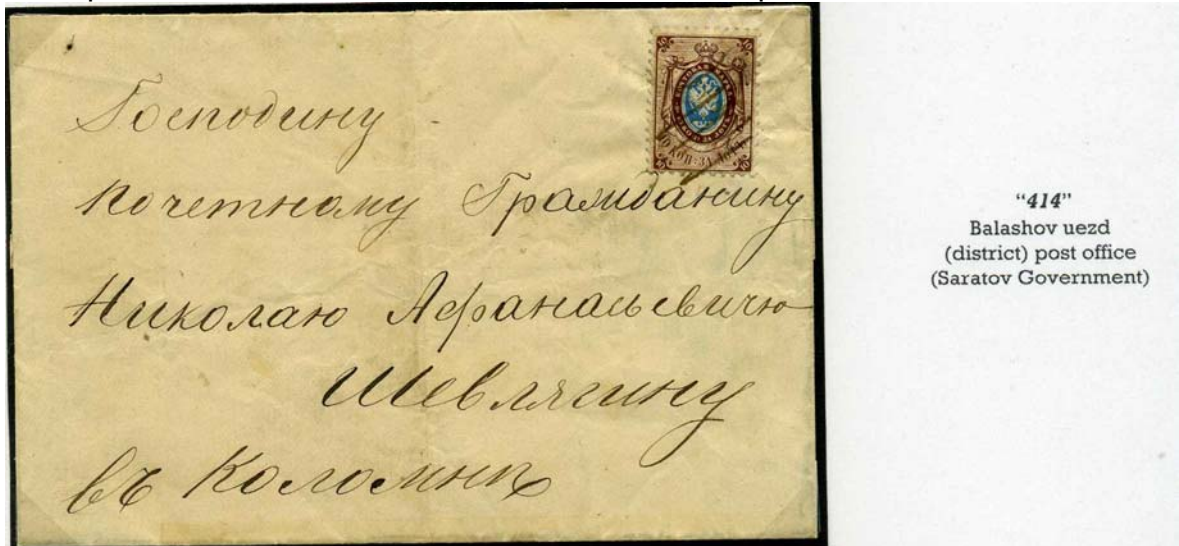 Господину
Почетному Гражданину
Николаю Афанасьевичю
Шевлягину
въ Коломнѣ
10 КОП. ЗА ЛОТЪ
"414"
Balashov uezd
(district) post office
(Saratov Government)